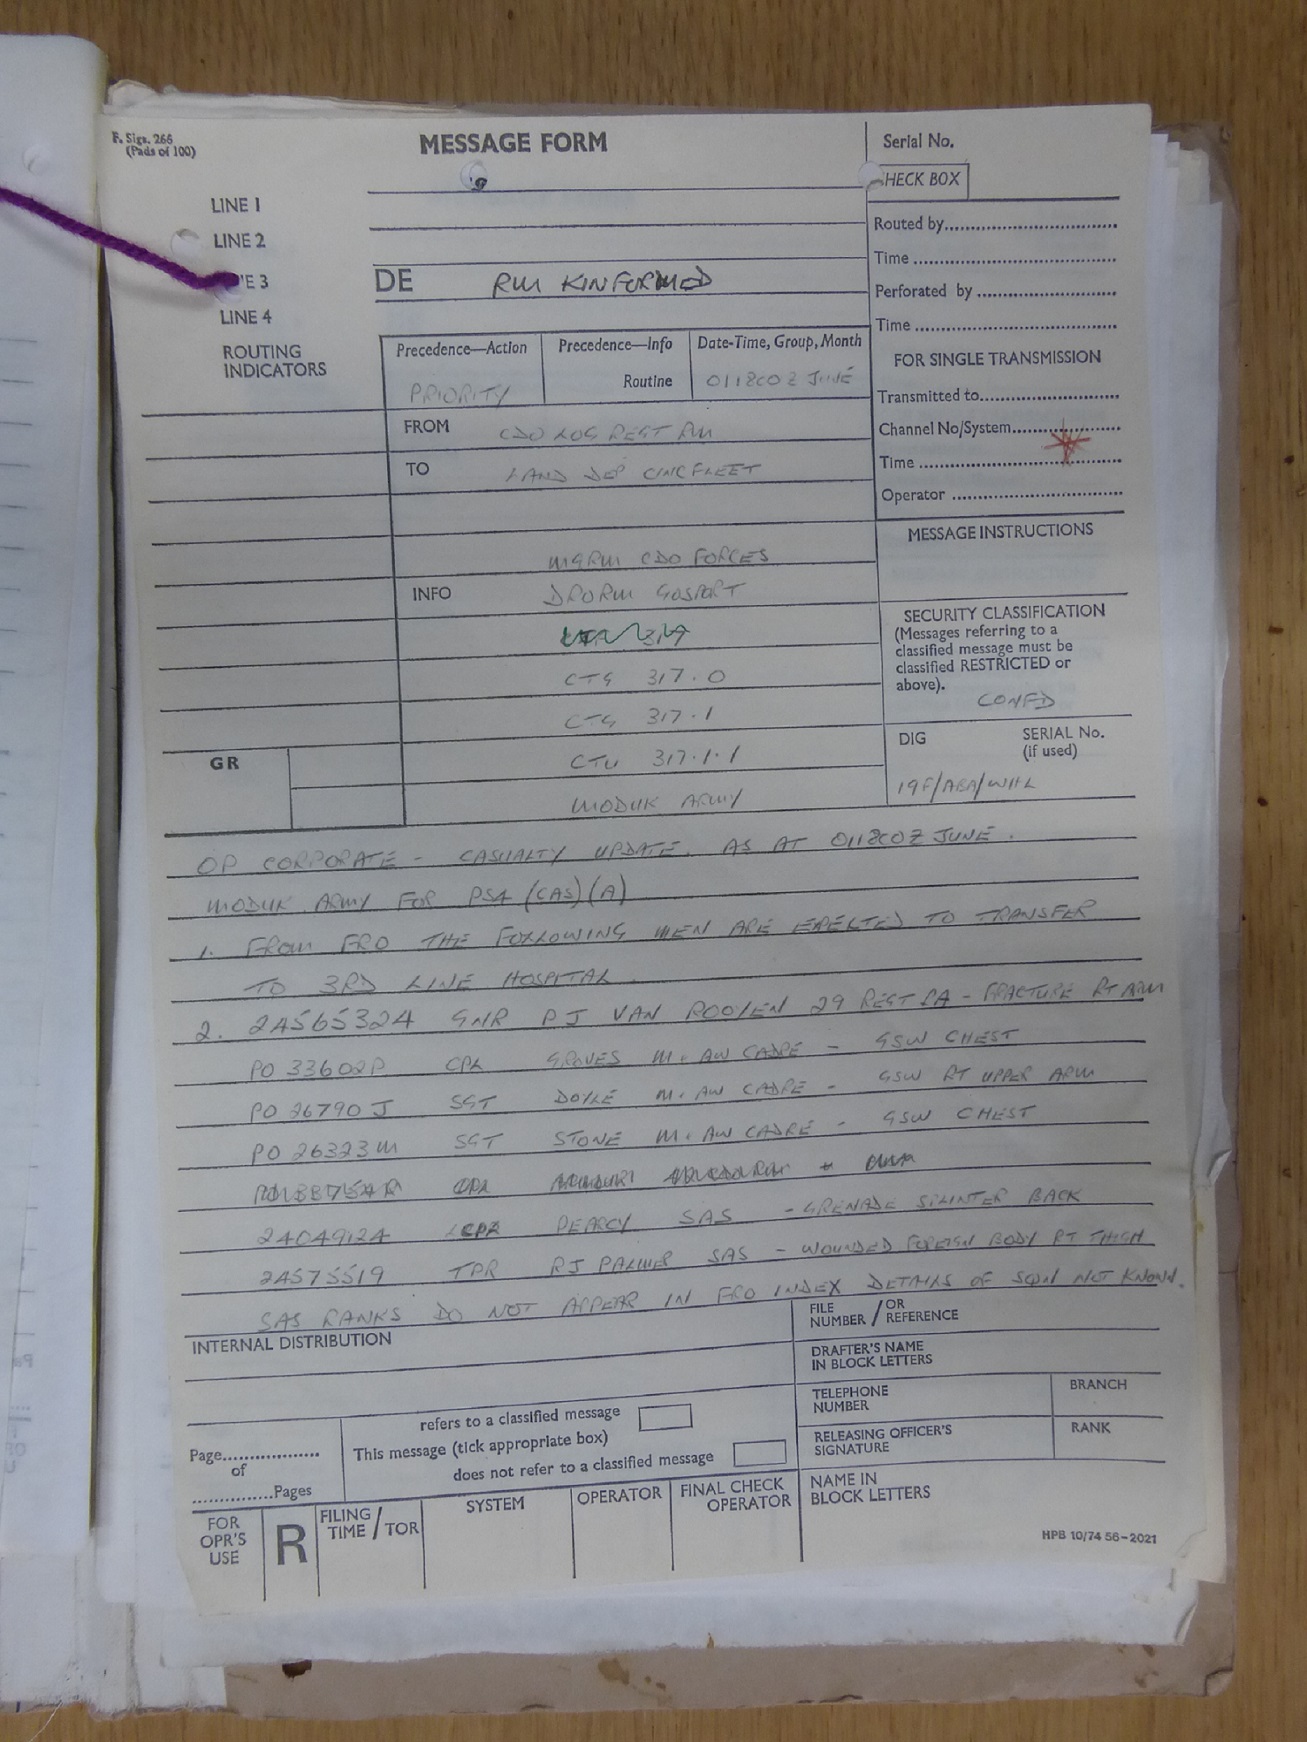 F. Sigs. 266
(Pads of 100)
MESSAGE FORM
Serial No.
HECK BOX
LINE 1
LINE 2
E 3
LINE 4
ROUTING
INDICATORS
DE RM KINFORMED
Routed by
Time
Perforated by
Time
FOR SINGLE TRANSMISSION
Transmitted to
Channel No/System
Time
Operator
Precedence—Action
PRIORITY
Precedence—Info
Routine
Date-Time, Group, Month
011800Z JUNE
FROM CDO LOG REGT RM
TO LAND DEP CINCFLEET
MGRM CDO FORCES
INFO DRORM GOSPORT
CTG 317.0
CTG 317.1
CTU 317.1.1
MODUK ARMY
MESSAGE INSTRUCTIONS
SECURITY CLASSIFICATION
(Messages referring to a
classified message must be
classified RESTRICTED or
above).
CONFD
DIG
SERIAL No.
(if used)
19F/ABA/WHL
GR
OP CORPORATE - CASUALTY UPDATE. AS AT 011800Z JUNE.
MODUK ARMY FOR PS4 (CAS)(A)
1. FROM FRO THE FOLLOWING MEN ARE EXPECTED TO TRANSFER
TO 3RD LINE HOSPITAL.
2. 24565324 GNR PJ VAN ROOYEN 29 REGT RA - FRACTURE RT ARM
PO 33602P CPL GROVES M. AW CADRE - GSW CHEST
PO 26790J SGT DOYLE M. AW CADRE - GSW RT UPPER ARM
PO 26323M SGT STONE M. AW CADRE - GSW CHEST
24049124 LCPL PEARCY SAS - GRENADE SPLINTER BACK
24575519 TPR RJ PALMER SAS - WOUNDED FOREIGN BODY RT THIGH
SAS RANKS DO NOT APPEAR IN FRO INDEX DETAILS OF SQN NOT KNOWN.
INTERNAL DISTRIBUTION
FILE / OR
NUMBER / REFERENCE
DRAFTER'S NAME
IN BLOCK LETTERS
TELEPHONE
NUMBER
BRANCH
RELEASING OFFICER'S
SIGNATURE
RANK
NAME IN
BLOCK LETTERS
Page
of
Pages
refers to a classified message
This message (tick appropriate box)
does not refer to a classified message
FOR
OPR'S
USE
R
FILING
TIME / TOR
SYSTEM
OPERATOR
FINAL CHECK
OPERATOR
HPB 10/74 56-2021